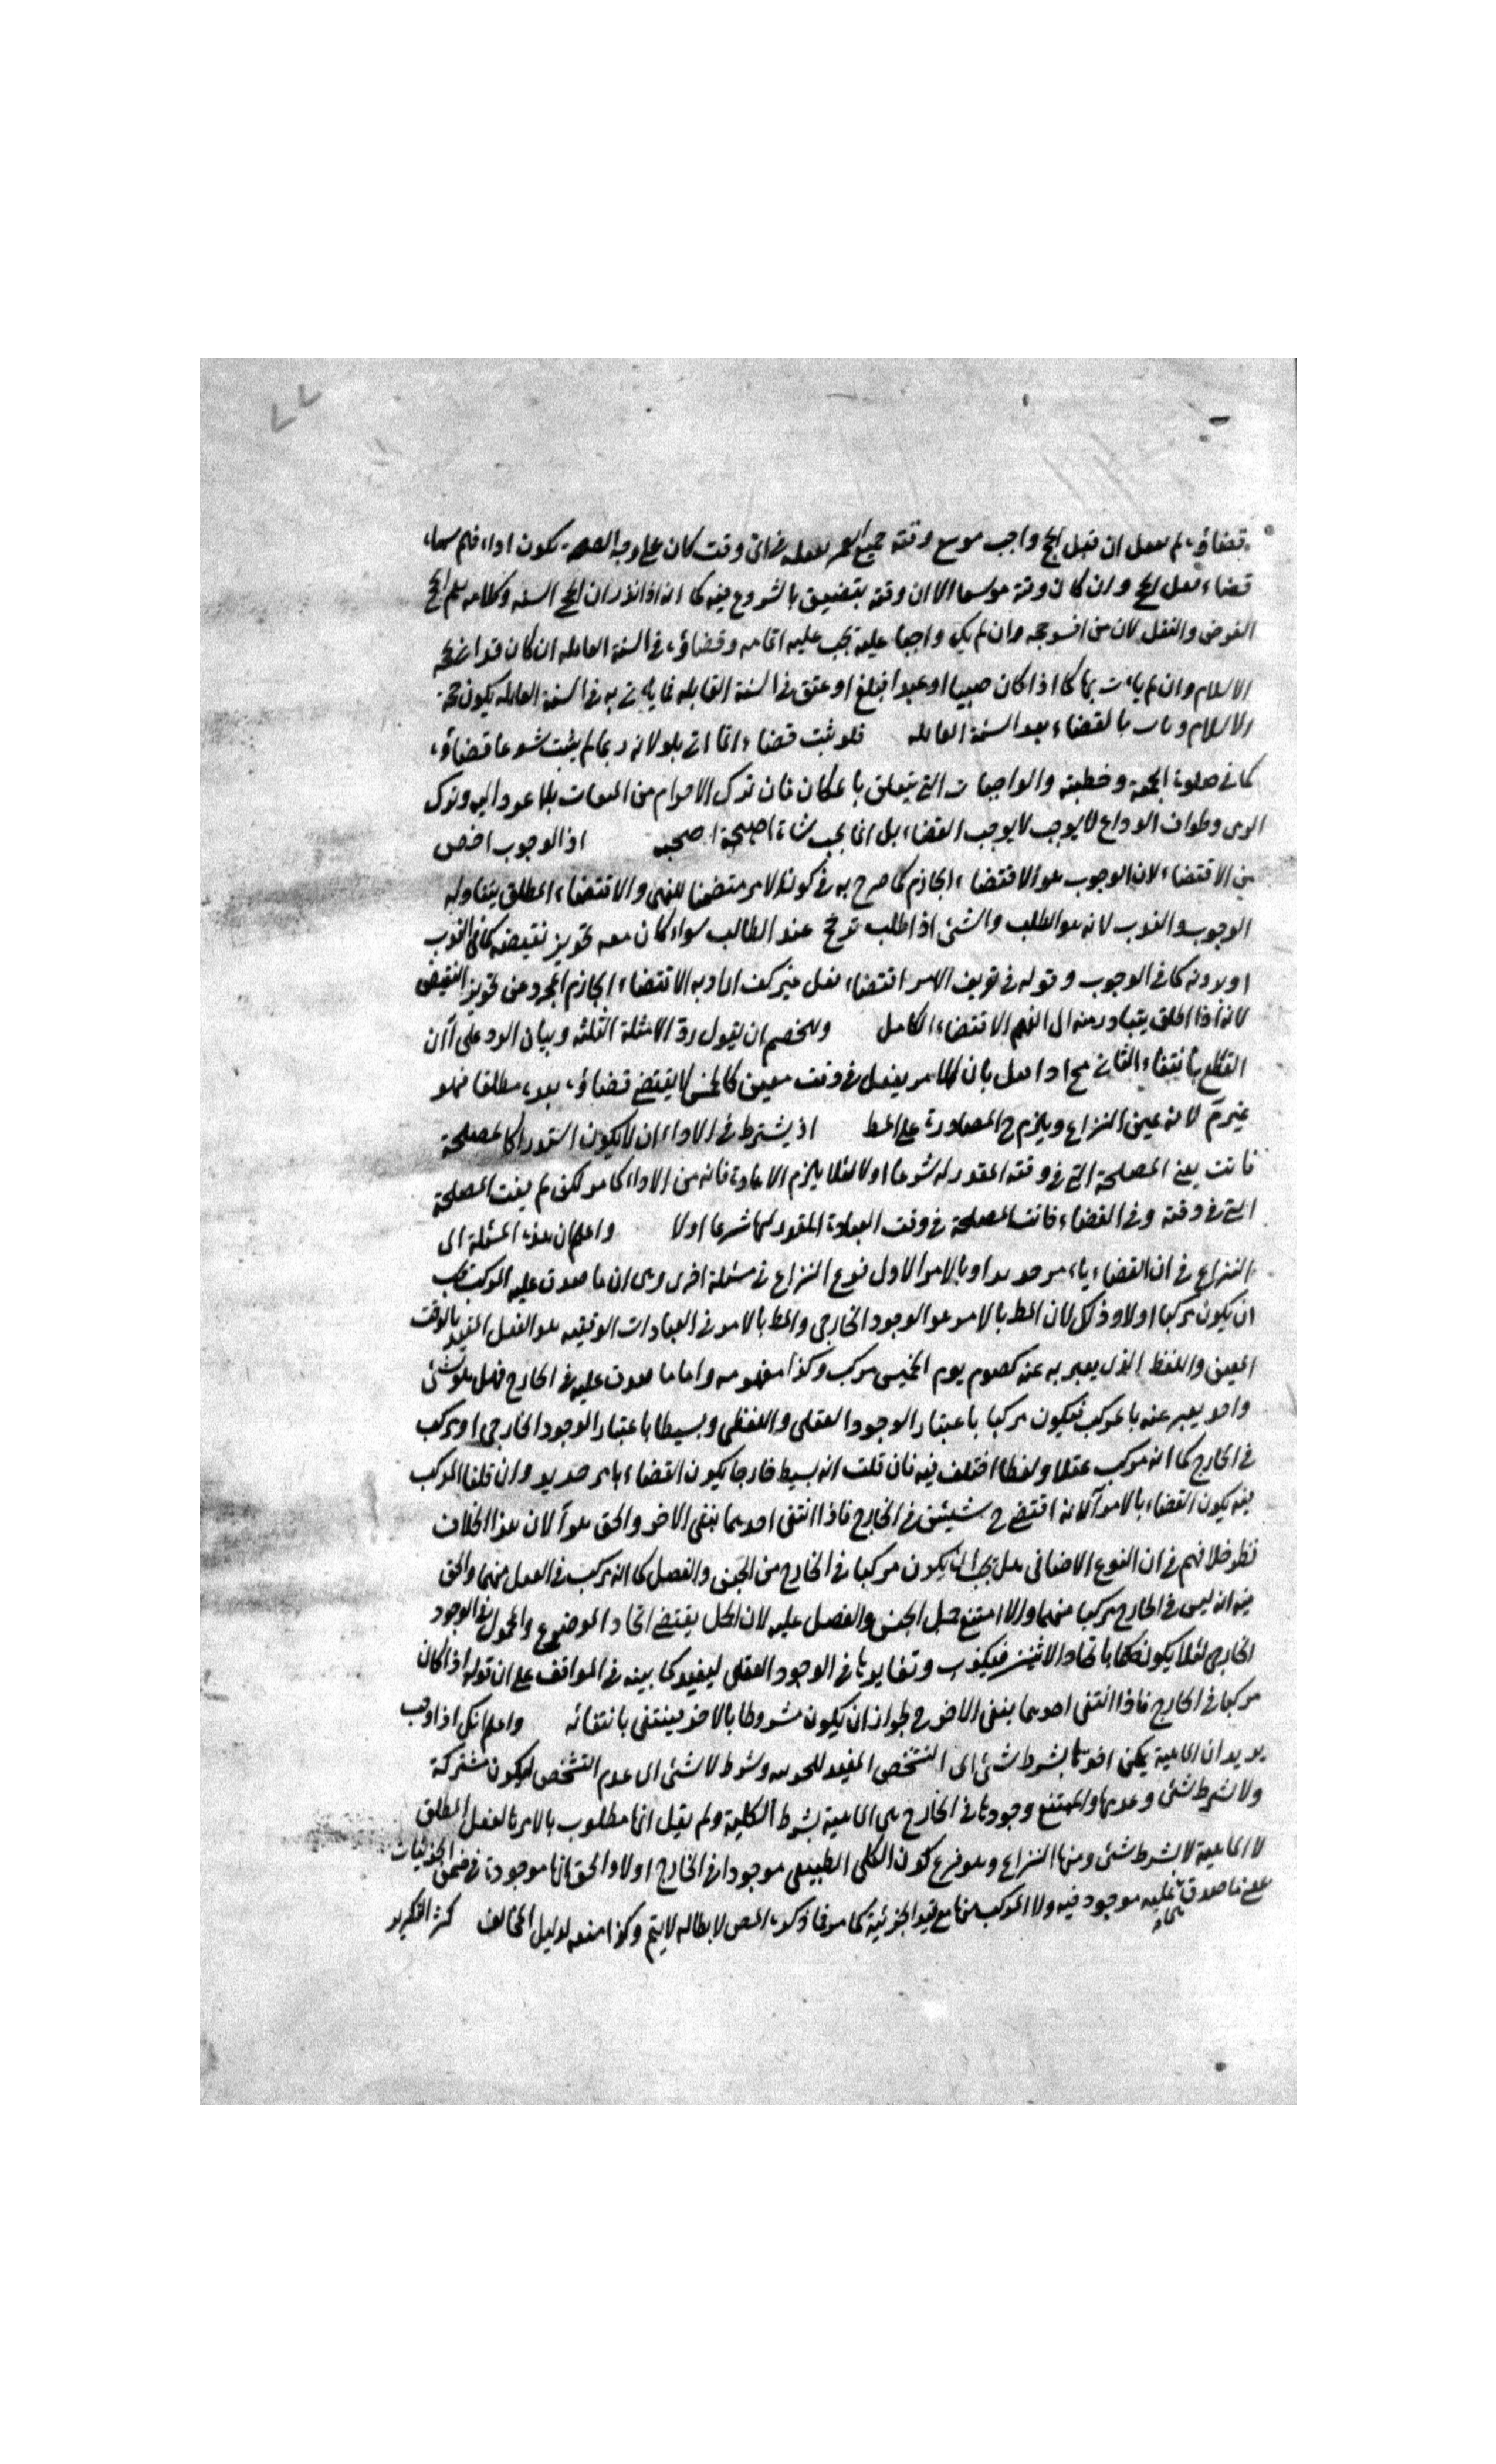 قضاؤه لم يعمل ان قيل الحج واجب موسع وقته جميع العمر ففعله فى اى وقت كان على وجه الصحة يكون اداء فلم سماه
قضاء وان كان وقته موسعا الا ان وقته يتضيق بالشروع فيه كما انه اذا نذر ان الحج السنة وكلامه يعم الحج
الفرض والنفل لان من افسد حجه وان لم يكن واجبا عليه يجب عليه اتمامه وقضاؤه فى السنة القابلة ان كان قد حجة
الاسلام وان لم يأت بها كما اذا كان صبيا او عبدا فبلغ او عتق فى السنة القابلة فما يأتى به فى السنة القابلة يكون حجة
الاسلام ويأت بالقضاء بعد السنة القابلة فلو ثبت قضاء انما اتى بلو لانه ربما لم يثبت شرعا قضاؤه
كما فى صلوة الجمعة وخطبته والواجبات التى يتعلق بالمكان فان ترك الاحرام من الميقات بلا عود اليه وترك
الرمى وطواف الوداع لا يوجب القضاء بل انما يجب شاة اذ الوجوب اخص
من الاقتضاء لان الوجوب هو الاقتضاء الجازم كما صرح به فى كون الامر متضمنا للنهى والاقتضاء المطلق يتناوله
الوجوب والندب لانه هو الطلب والشئ اذا طلب ترجح عند الطالب سواء كان معه تجويز نقيضه كما فى الندب
او بدونه كما فى الوجوب وقوله فى تعريف الامر اقتضاء فعل غير كف اراد به الاقتضاء الجازم المجرد من تجويز النقيض
لانه اذا اطلق يتبادر منه الى الفهم الاقتضاء الكامل وللخصم ان يقول رد الامثلة الثلثة وبيان الرد على ان
القطع بانتفاء الثانى بان الامر بفعل فى وقت معين كالخميس لا يقتضى قضاؤه بعده مطلقا فهو
غير م لانه عين النزاع ويلزم ح المصادرة على المط اذ يشترط فى الاداء ان لا يكون استدراكا لمصلحة
فاتت يعنى المصلحة التى فى وقته المقدر له شرعا اولا لئلا يلزم الاعادة فانه من الاداء كما مر لكن لم يفت المصلحة
التى فى وقته وفى القضاء فاتت المصلحة فى وقت العبادة المقدر لها شرعا اولا واعلم ان هذه المسئلة اى
النزاع فى ان القضاء بامر جديد او بالامر الاول فرع النزاع فى مسئلة اخرى وهى ان ما صدق عليه المركب يجب
ان يكون مركبا اولا وذلك لان المط بالامر هو الوجود الخارجى والمط بالامر فى العبادات الوقتية هو الفعل المقيد بالوقت
المعين واللفظ الذى يعبر به عنه كصوم يوم الخميس مركب وكذا مفهومه واما ما صدق عليه فى الخارج فهل هو شئ
واحد يعبر عنه بالمركب فيكون مركبا باعتبار الوجود العقلى واللفظى وبسيطا باعتبار الوجود الخارجى او مركب
فى الخارج كما انه مركب عقلا ولفظا اختلف فيه فان قلت انه بسيط خارجا يكون القضاء بامر جديد وان قلنا المركب
فيه يكون القضاء بالامر لانه اقتضى ح شيئين فى الخارج فاذا انتفى احدهما بقى الاخر والحق هو لان هذا الخلاف
نظير خلافهم فى ان النوع الاضافى هل يجب ان يكون مركبا فى الخارج من الجنس والفصل كما انه مركب فى العقل منهما والحق
فيه انه ليس فى الخارج مركبا منهما والا امتنع حمل الجنس والفصل عليه لان الحمل يقتضى اتحاد الموضوع والمحمول فى الوجود
الخارجى لئلا يكون حكما باتحاد الاثنين فيكذب وتغايرهما فى الوجود العقلى ليفيد كما بينه فى المواقف على ان قوله اذا كان
مركبا فى الخارج فاذا انتفى احدهما بقى الاخر م لجواز ان يكون مشروطا بالاخر فينتفى بانتفائه واعلم انك اذا
يريد ان الماهية يمكن اخذها بشرط شئ اى التشخص المقيد للجزئية وشرط لا شئ اى عدم التشخص ليكون مشتركة
ولا شرط شئ وعدمها والممتنع وجودها فى الخارج هى الماهية بشرط الكلية ولم يقل انها مطلوب بالامر بالفعل المطلق
لا الماهية لا بشرط شئ ومنها النزاع وهو فرع كون الكلى الطبيعى موجودا فى الخارج اولا والحق انها موجودة فى ضمن الجزئيات
على ما صدق عليه موجود فيه ولا المركب منها مع قيد الجزئية كما مر فما ذكره المص لابطاله لا يتم وكذا منعه لدليل المخالف كرر التكرير